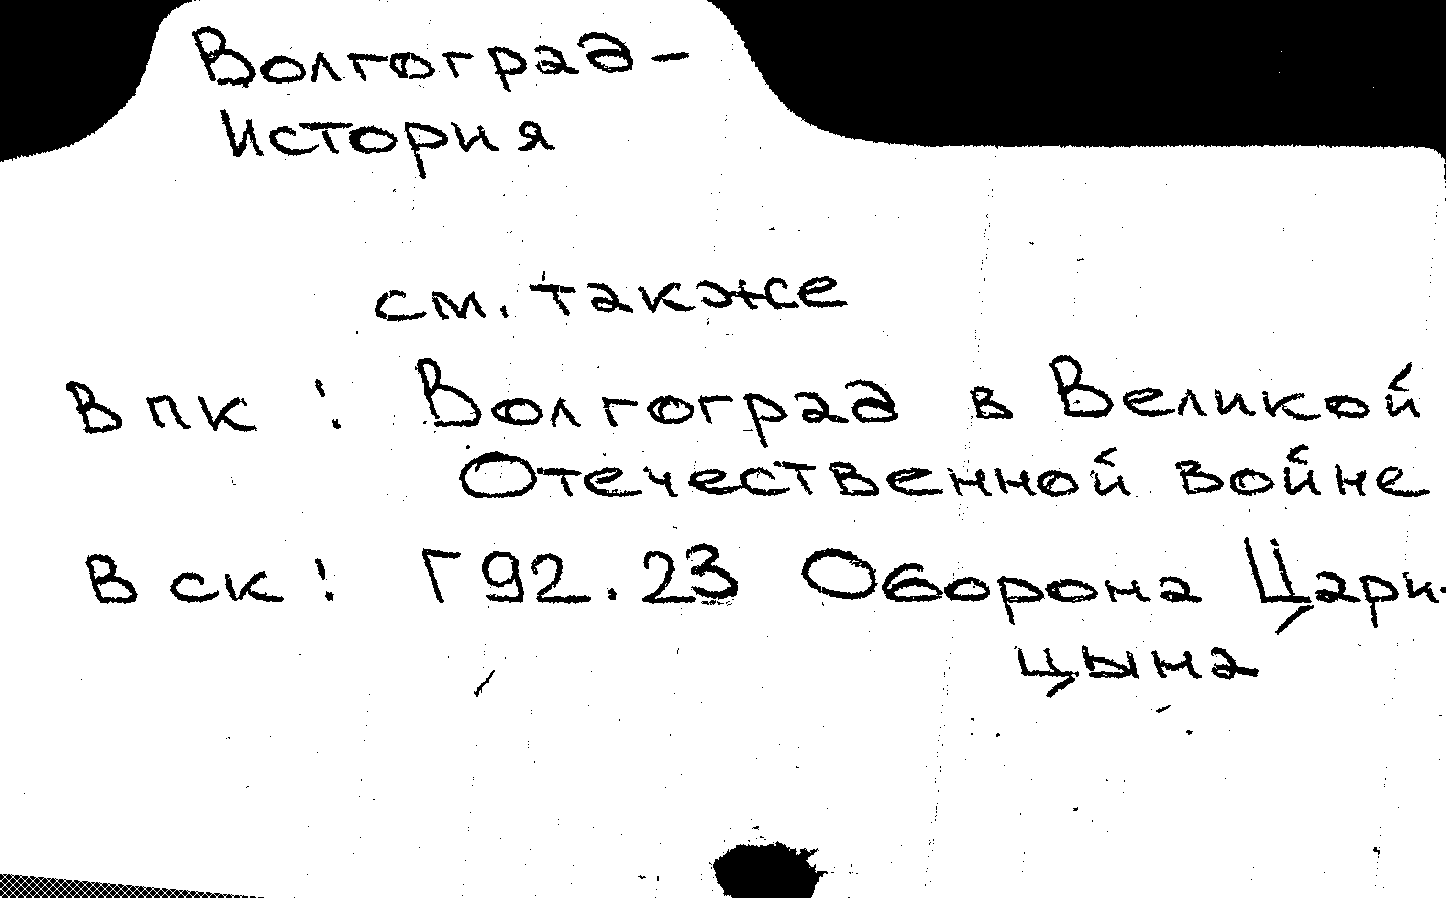 Волгоград-
История
см. также
в пк: Волгоград в Великой
Отечественной войне
в ск: Г92.23 Оборона Цари-
цына